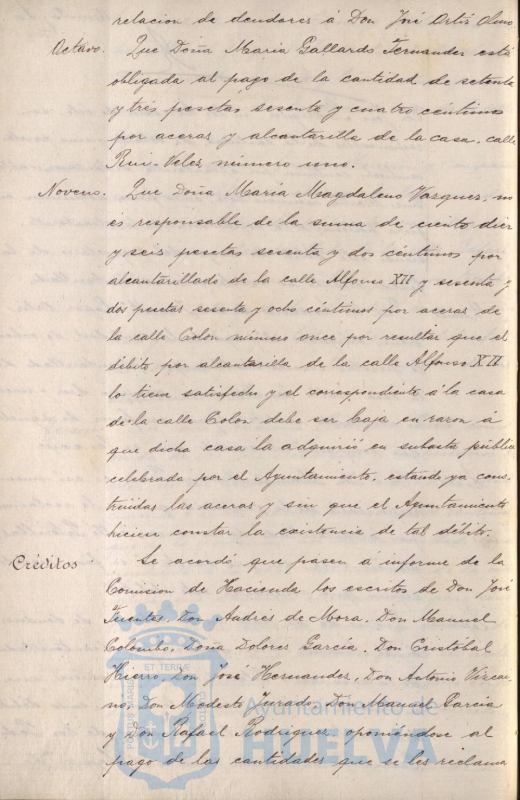 relacion de deudores á Don José Ortiz Olmo
Octavo. Que Doña Maria Gallardo Fernandez está
obligada al pago de la cantidad de setenta
y tres pesetas sesenta y cuatro céntimos
por aceras y alcantarilla de la casa, calle
Rui-Velez número uno.
Noveno. Que Doña Maria Magdaleno Vazquez, no
es responsable de la suma de ciento diez
y seis pesetas sesenta y dos céntimos por
alcantarillado de la calle Alfonso XII y sesenta y
dos pesetas sesenta y ocho céntimos por aceras de
la calle Colon número once por resultar que el
débito por alcantarilla de la calle Alfonso XII
lo tiene satisfecho y el correspondiente á la casa
de la calle Colon debe ser baja en razon á
que dicha casa la adquirió en subasta pública
celebrada por el Ayuntamiento, estando ya cons-
truidas las aceras y sin que el Ayuntamiento
hiciere constar la existencia de tal débito.
Créditos Se acordó que pasen á informe de la
Comision de Hacienda los escritos de Don José
Fuentes, Don Andrés de Mora, Don Manuel
Colombo, Doña Dolores Garcia, Don Cristóbal
Hierro, Don José Hernandez, Don Antonio Vizcai-
no, Don Modesto Jurado, Don Manuel Garcia
y Don Rafael Rodriguez, oponiéndose al
pago de las cantidades que se les reclama
PORTUS MARIS ET TERRAE CUSTODIA
Ayuntamiento de
HUELVA